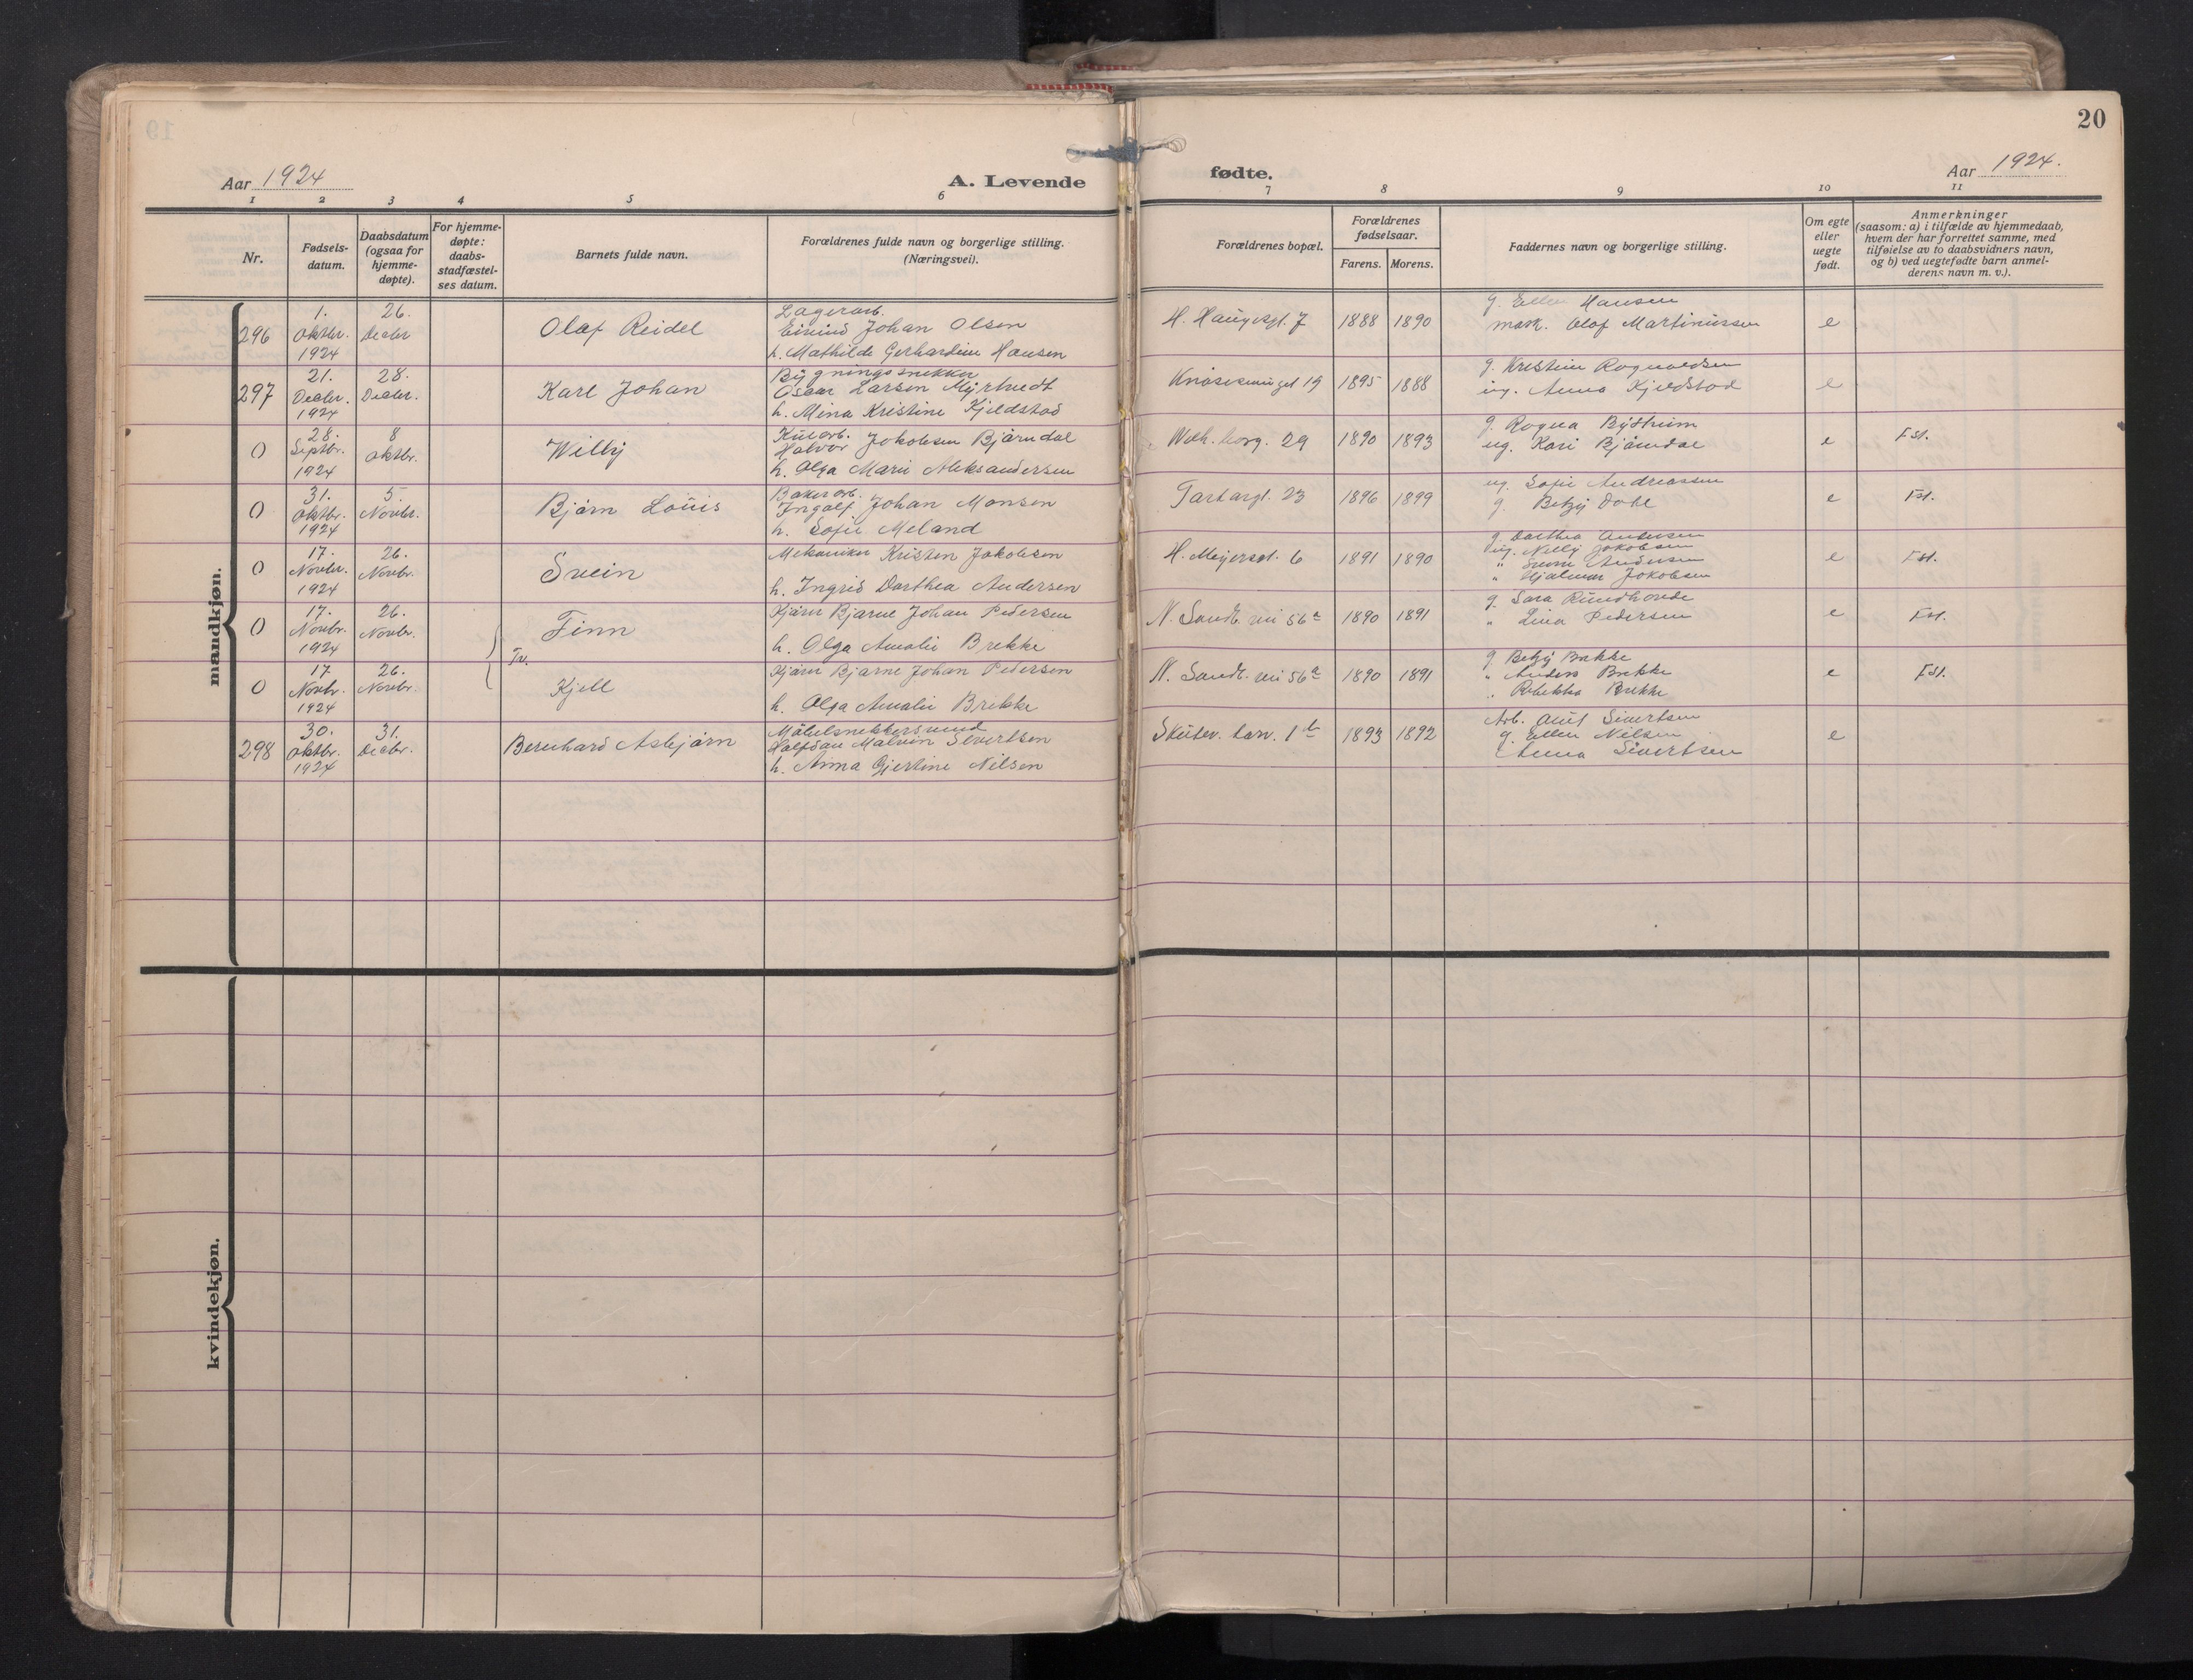 20
Aar 1924
A. Levende
fødte.
Aar 1924.
1 2 3 4 5 6 7 8 9 10 11
Nr.
Fødsels-
datum.
Daabsdatum
(ogsaa for
hjemme-
døpte).
For hjemme-
døpte:
daabs-
stadfæstel-
ses datum.
Barnets fulde navn.
Forældrenes fulde navn og borgerlige stilling.
(Næringsvei).
Forældrenes bopæl.
Forældrenes
fødselsaar.
Farens. Morens.
Faddernes navn og borgerlige stilling.
Om egte
eller
uegte
født.
Anmerkninger
(saasom: a) i tilfælde av hjemmedaab,
hvem der har forrettet samme, med
tilføielse av to daabsvidners navn,
og b) ved uegtefødte barn anmel-
derens navn m. v.).
mandkjøn.
296
1.
Oktbr.
1924
26.
Decbr
Olaf Reidel
Lagerarb.
Eivind Johan Olsen
h. Mathilde Gerhardine Hansen
H. Haugesgt. 7
1888 1890
g. Ellen Hansen
mask. Olaf Martinussen
e
297
21.
Decbr.
1924
28.
Decbr.
Karl Johan
Bygningssnekker
Oscar Larsen Myrtvedt
h. Mina Kristine Kjeldstad
Knøsesmuget 19
1895 1888
g. Kristine Rognvaldsen
ug. Anna Kjeldstad
e
0
28.
Septbr.
1924
8
Oktbr.
Willy
Kularb.
Halvor Jakobsen Bjørndal
h. Olga Marie Aleksandersen
Welh. borg. 29
1890 1893
g. Rogna Bystrøm
ug. Kari Bjørndal
e
Fst.
0
31.
Oktbr.
1924
5.
Novbr.
Bjørn Louis
Bakerarb.
Ingolf Johan Monsen
h. Sofie Meland
Tartargt. 23
1896 1899
ug. Sofie Andreassen
g. Betzy Dahl
e
Fst.
0
17.
Novbr.
1924
26.
Novbr.
Svein
Mekaniker Kristen Jakobsen
h. Ingrid Dorthea Andersen
H. Meyersgt. 6
1891 1890
g. Dorthea Andersen
ug. Nelly Jakobsen
" Andersen
" Hjalmar Jokobsen
e
Fst.
0
17.
Novbr.
1924
26.
Novbr.
Finn
Kjører Bjarne Johan Pedersen
h. Olga Amalie Brekke
N. Sandv. vei 56a
1890 1891
g. Sara Rundhovde
" Lina Pedersen
e
Fst.
Tv.
0
17
Novbr.
1924
26.
Novbr.
Kjell
Kjører Bjarne Johan Pedersen
h. Olga Amalie Brekke
N. Sandv. vei 56a
1890 1891
g. Betzy Bakke
" Anders Brekke
" Rebekka Brekke
e
Fst.
298
30.
Oktbr.
1924
31.
Decbr.
Bernhard Asbjørn
Møbelsnekkersvend
Halfdan Malvin Sivertsen
h. Anna Gjertine Nilsen
Skutev. torv. 1b
1893 1892
Arb. Sivertsen
g. Ellen Nilsen
Anna Sivertsen
e
kvindekjøn.